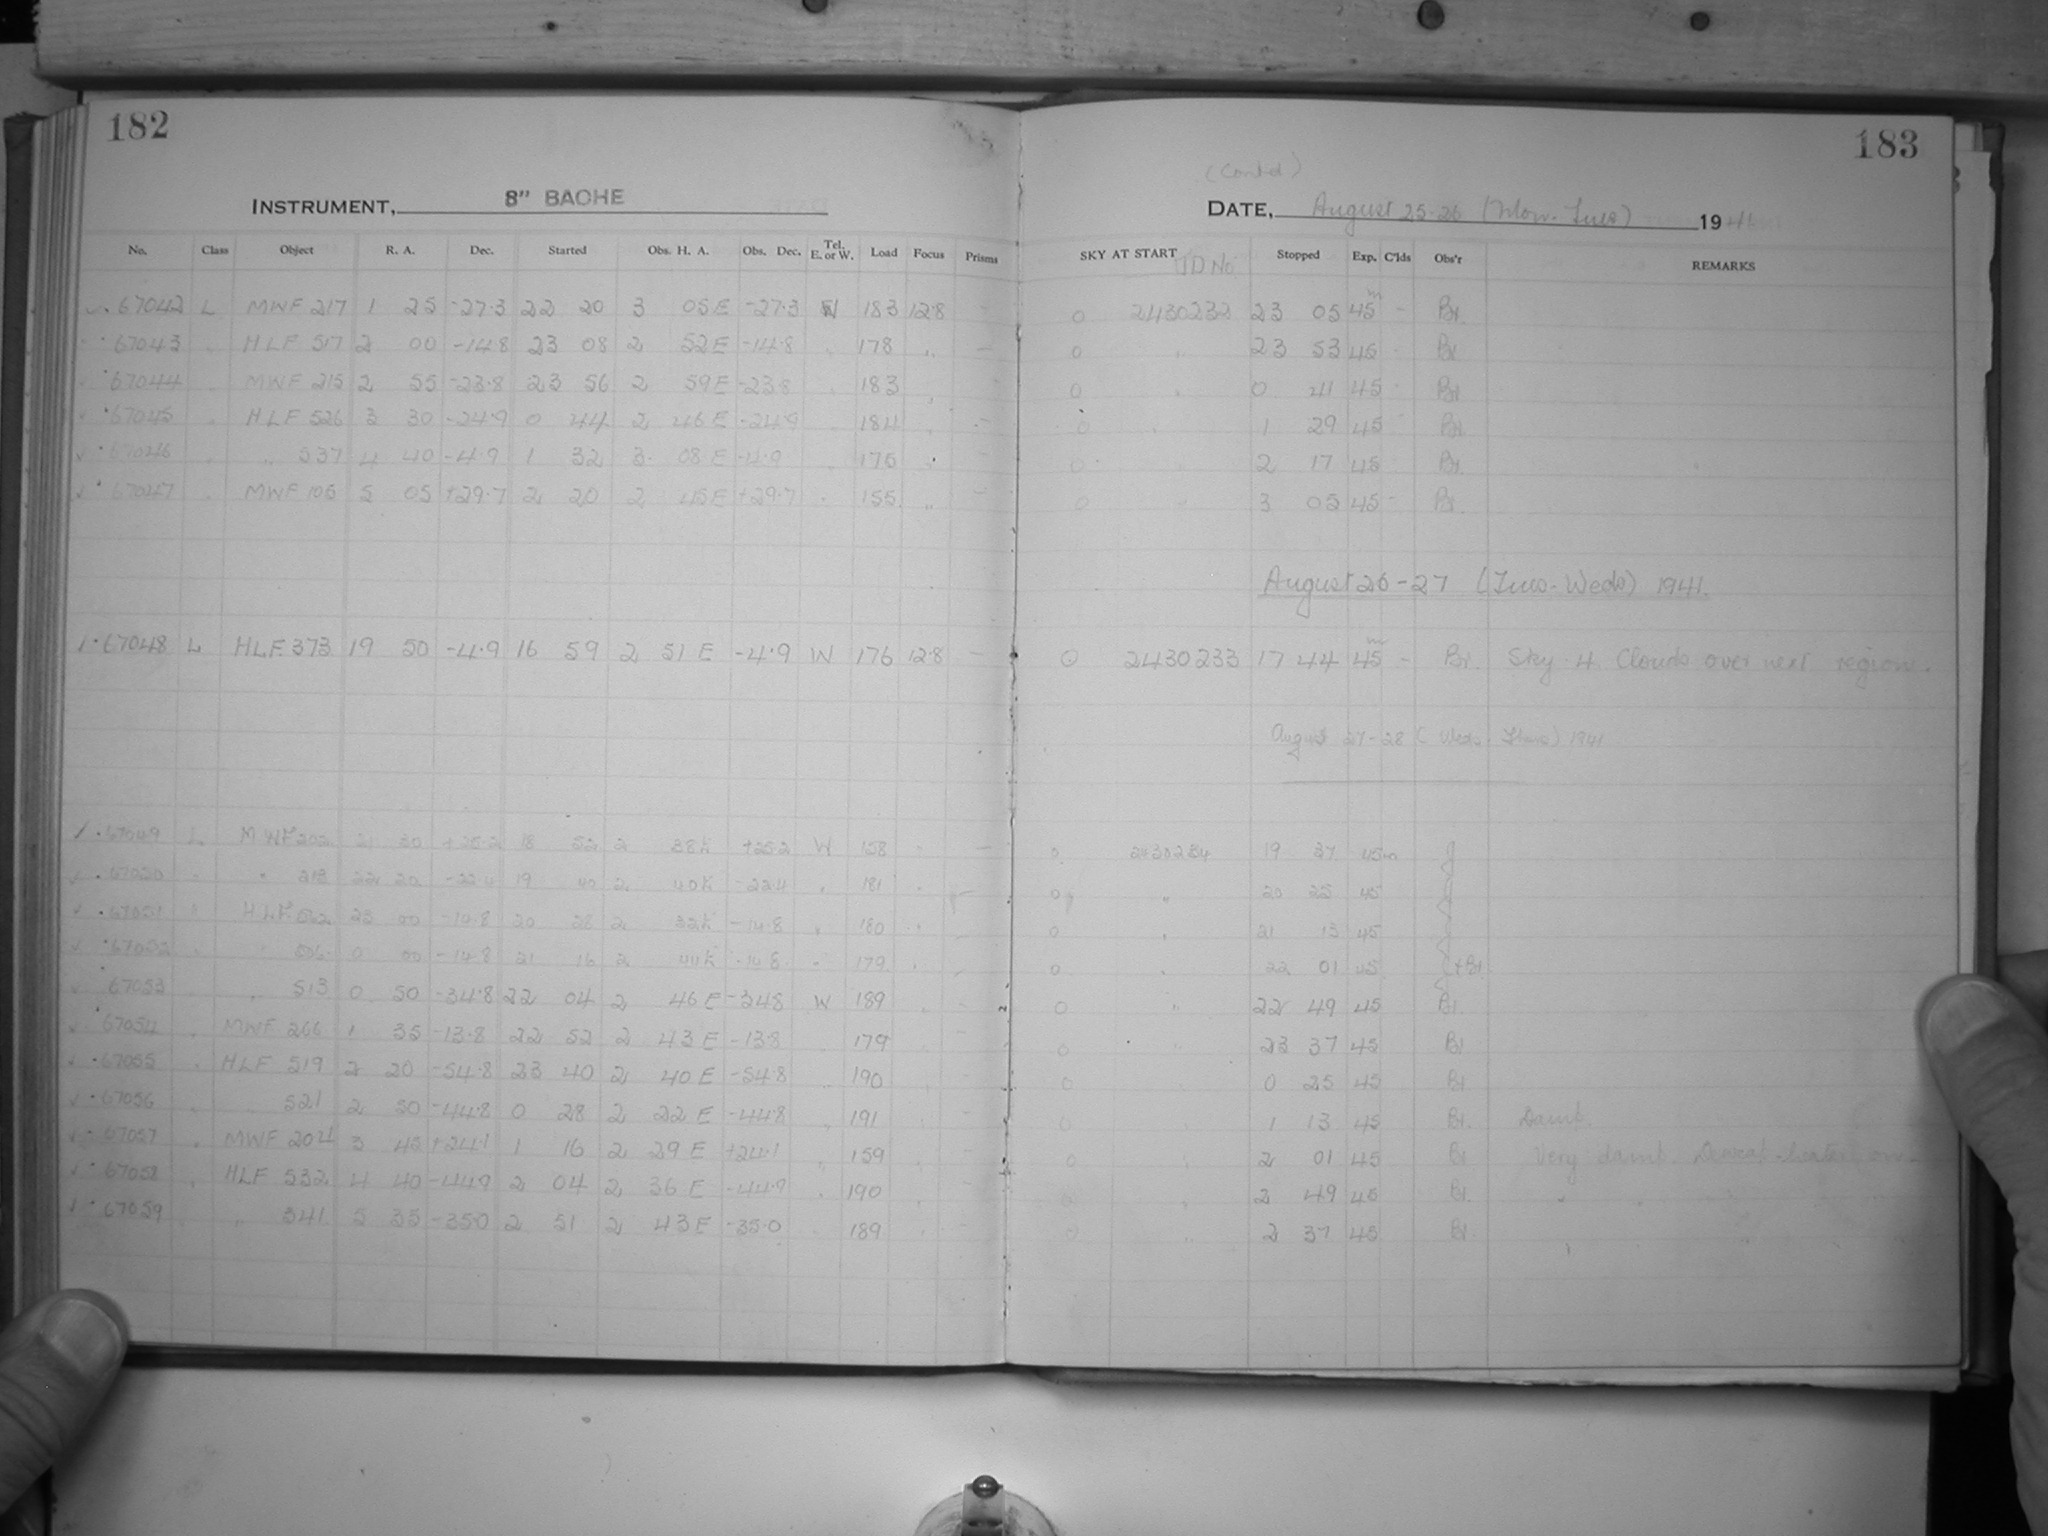 182
183
INSTRUMENT, 8" BACHE
(Contd)
DATE, August 25-26 (Mon. Tues) 1941
No. Class Object R. A. Dec. Started Obs. H. A. Obs. Dec. Tel. E. or W. Load Focus Prisms SKY AT START JD No. Stopped Exp. C'lds Obs'r REMARKS
67042 L MWF 217 1 25 -27.3 22 20 3 05 E -27.3 W 183 12.8 - 0 2430232 23 05 45m - Br.
67043 " HLF 517 2 00 -14.8 23 08 2 52 E -14.8 " 178 " - 0 " 23 53 45 - Br.
67044 " MWF 215 2 55 -23.8 23 56 2 59 E -23.8 " 183 " - 0 " 0 41 45 - Br.
67045 " HLF 526 3 30 -24.9 0 44 2 46 E -24.9 " 184 " - 0 " 1 29 45 - Br.
67046 " " 537 4 40 -4.9 1 32 3 08 E -4.9 " 175 " - 0 " 2 17 45 - Br.
67047 " MWF 105 5 05 +29.7 2 20 2 45 E +29.7 " 155 " - 0 " 3 05 45 - Br.
August 26-27 (Tues-Weds) 1941.
67048 L HLF 373 19 50 -4.9 16 59 2 51 E -4.9 W 176 12.8 - 0 2430233 17 44 45m - Br. Sky 4. Clouds over next region.
August 27-28 (Weds. Thurs) 1941
67049 L MWF 202 21 30 +25.2 18 52 2 38 E +25.2 W 158 - 0 2430234 19 37 45m J
67050 " " 218 22 20 -22.4 19 40 2 40 E -22.4 " 181 0 " 20 25 45 J
67051 " HLF 23 00 20 28 2 32 E -14.8 " 180 0 " 21 13 45 J
67052 " " 0 00 -14.8 21 16 2 44 E -14.8 " 179 0 " 22 01 45 J + Br.
67053 " 513 0 50 -34.8 22 04 2 46 E -34.8 W 189 - 0 " 22 49 45 Br.
67054 " MWF 266 1 35 -13.8 22 52 2 43 E -13.8 179 - 0 " 23 37 45 Br.
67055 " HLF 519 2 20 -54.8 23 40 2 40 E -54.8 " 190 - 0 " 0 25 45 Br
67056 " " 521 2 50 -44.8 0 28 2 22 E -44.8 " 191 - 0 " 1 13 45 Br. Damp.
67057 " MWF 204 3 45 +24.1 1 16 2 29 E +24.1 " 159 - 0 " 2 01 45 Br Very damp. Dewcap heater on.
67058 " HLF 532 4 40 -44.9 2 04 2 36 E -44.9 " 190 - 0 " 2 49 45 Br. " "
67059 " " 541 5 35 -35.0 2 51 2 43 E -35.0 " 189 - 0 " 2 37 45 Br. "